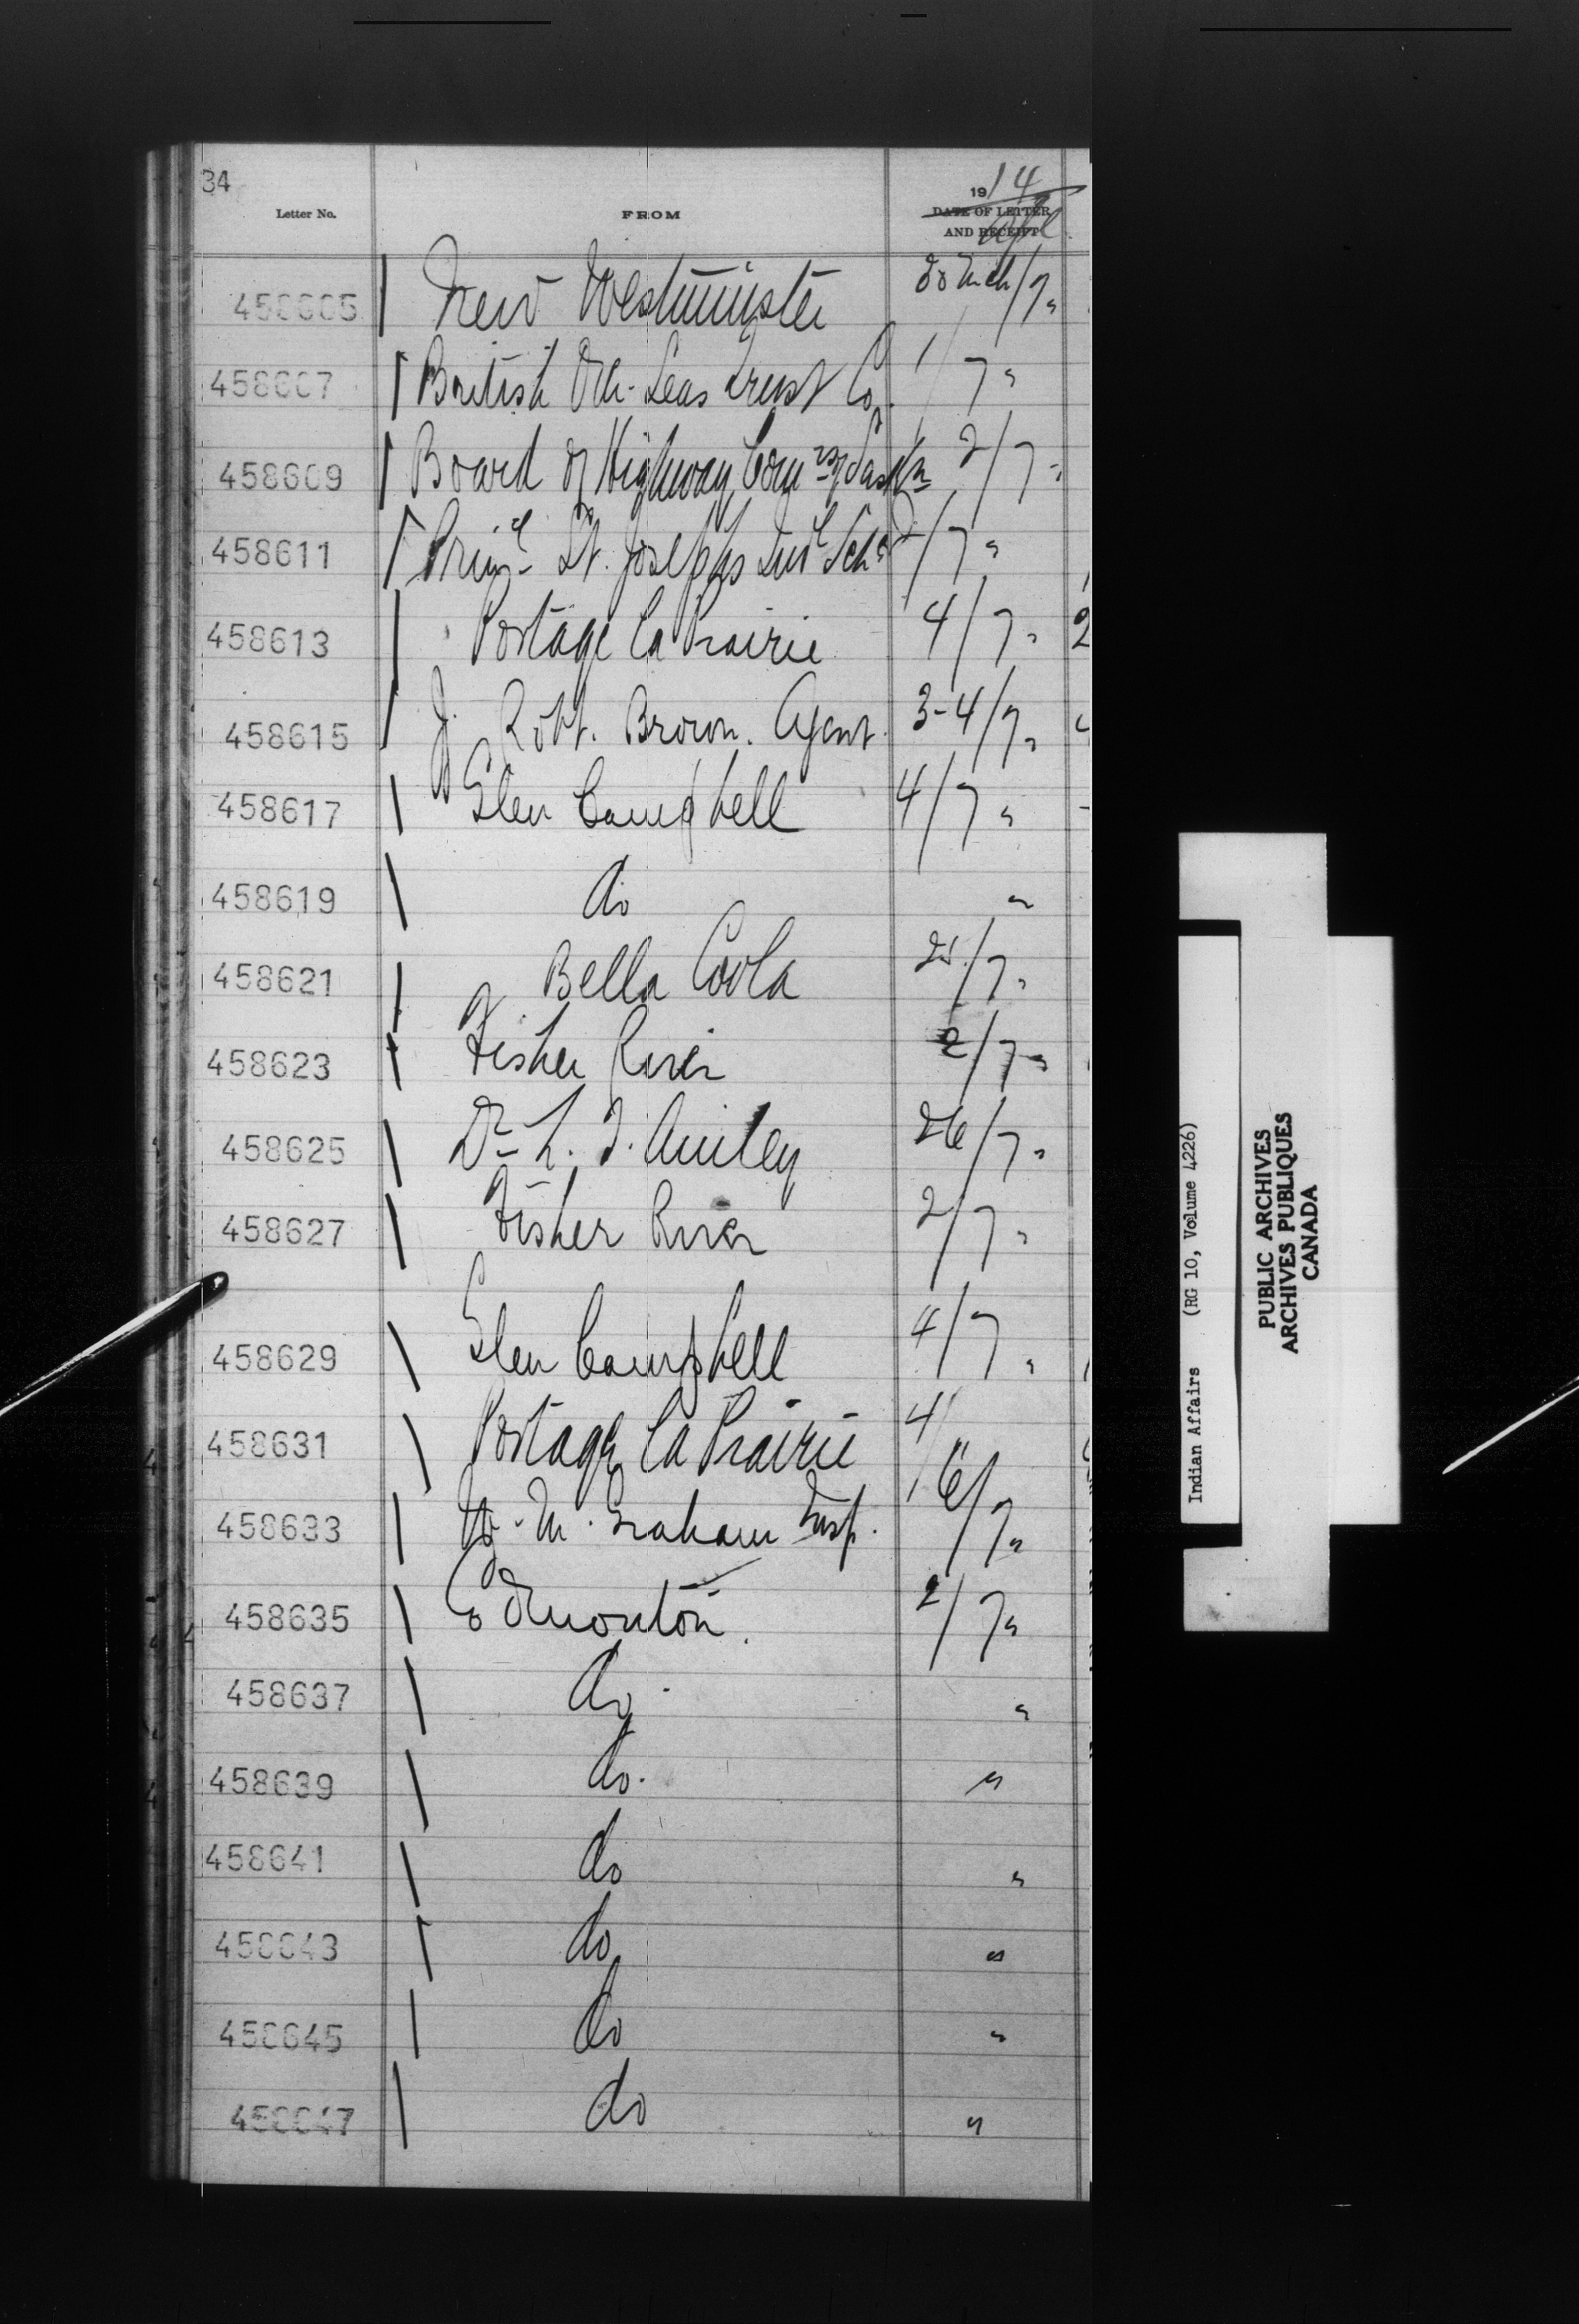 34
1914
Letter No. FROM DATE OF LETTER
AND RECEIPT
Apl
458605 New Westminster 30 Mch/7 "
458607 British Ove-Seas Trust Co. 1/7 "
458609 Board of Highway Comrs of Saskn 2/7 "
458611 Prinl St. Josephs Indl Schol /7 "
458613 Portage la Prairie 4/7 "
458615 J. Robt. Brown. Agent. 3-4/7 "
458617 Glen Campbell 4/7 "
458619 do "
458621 Bella Coola 25/7 "
458623 Fisher River 2/7 "
458625 Dr 26/7 "
458627 Fisher River 2/7 "
458629 Glen Campbell 4/7 "
458631 Portage la Prairie 4/ "
458633 W. M. Graham Insp. 6/7 "
458635 Edmonton. 2/7 "
458637 do. "
458639 do. "
458641 do "
458643 do "
458645 do "
458647 do "
Indian Affairs (RG 10, Volume 4226)
PUBLIC ARCHIVES
ARCHIVES PUBLIQUES
CANADA